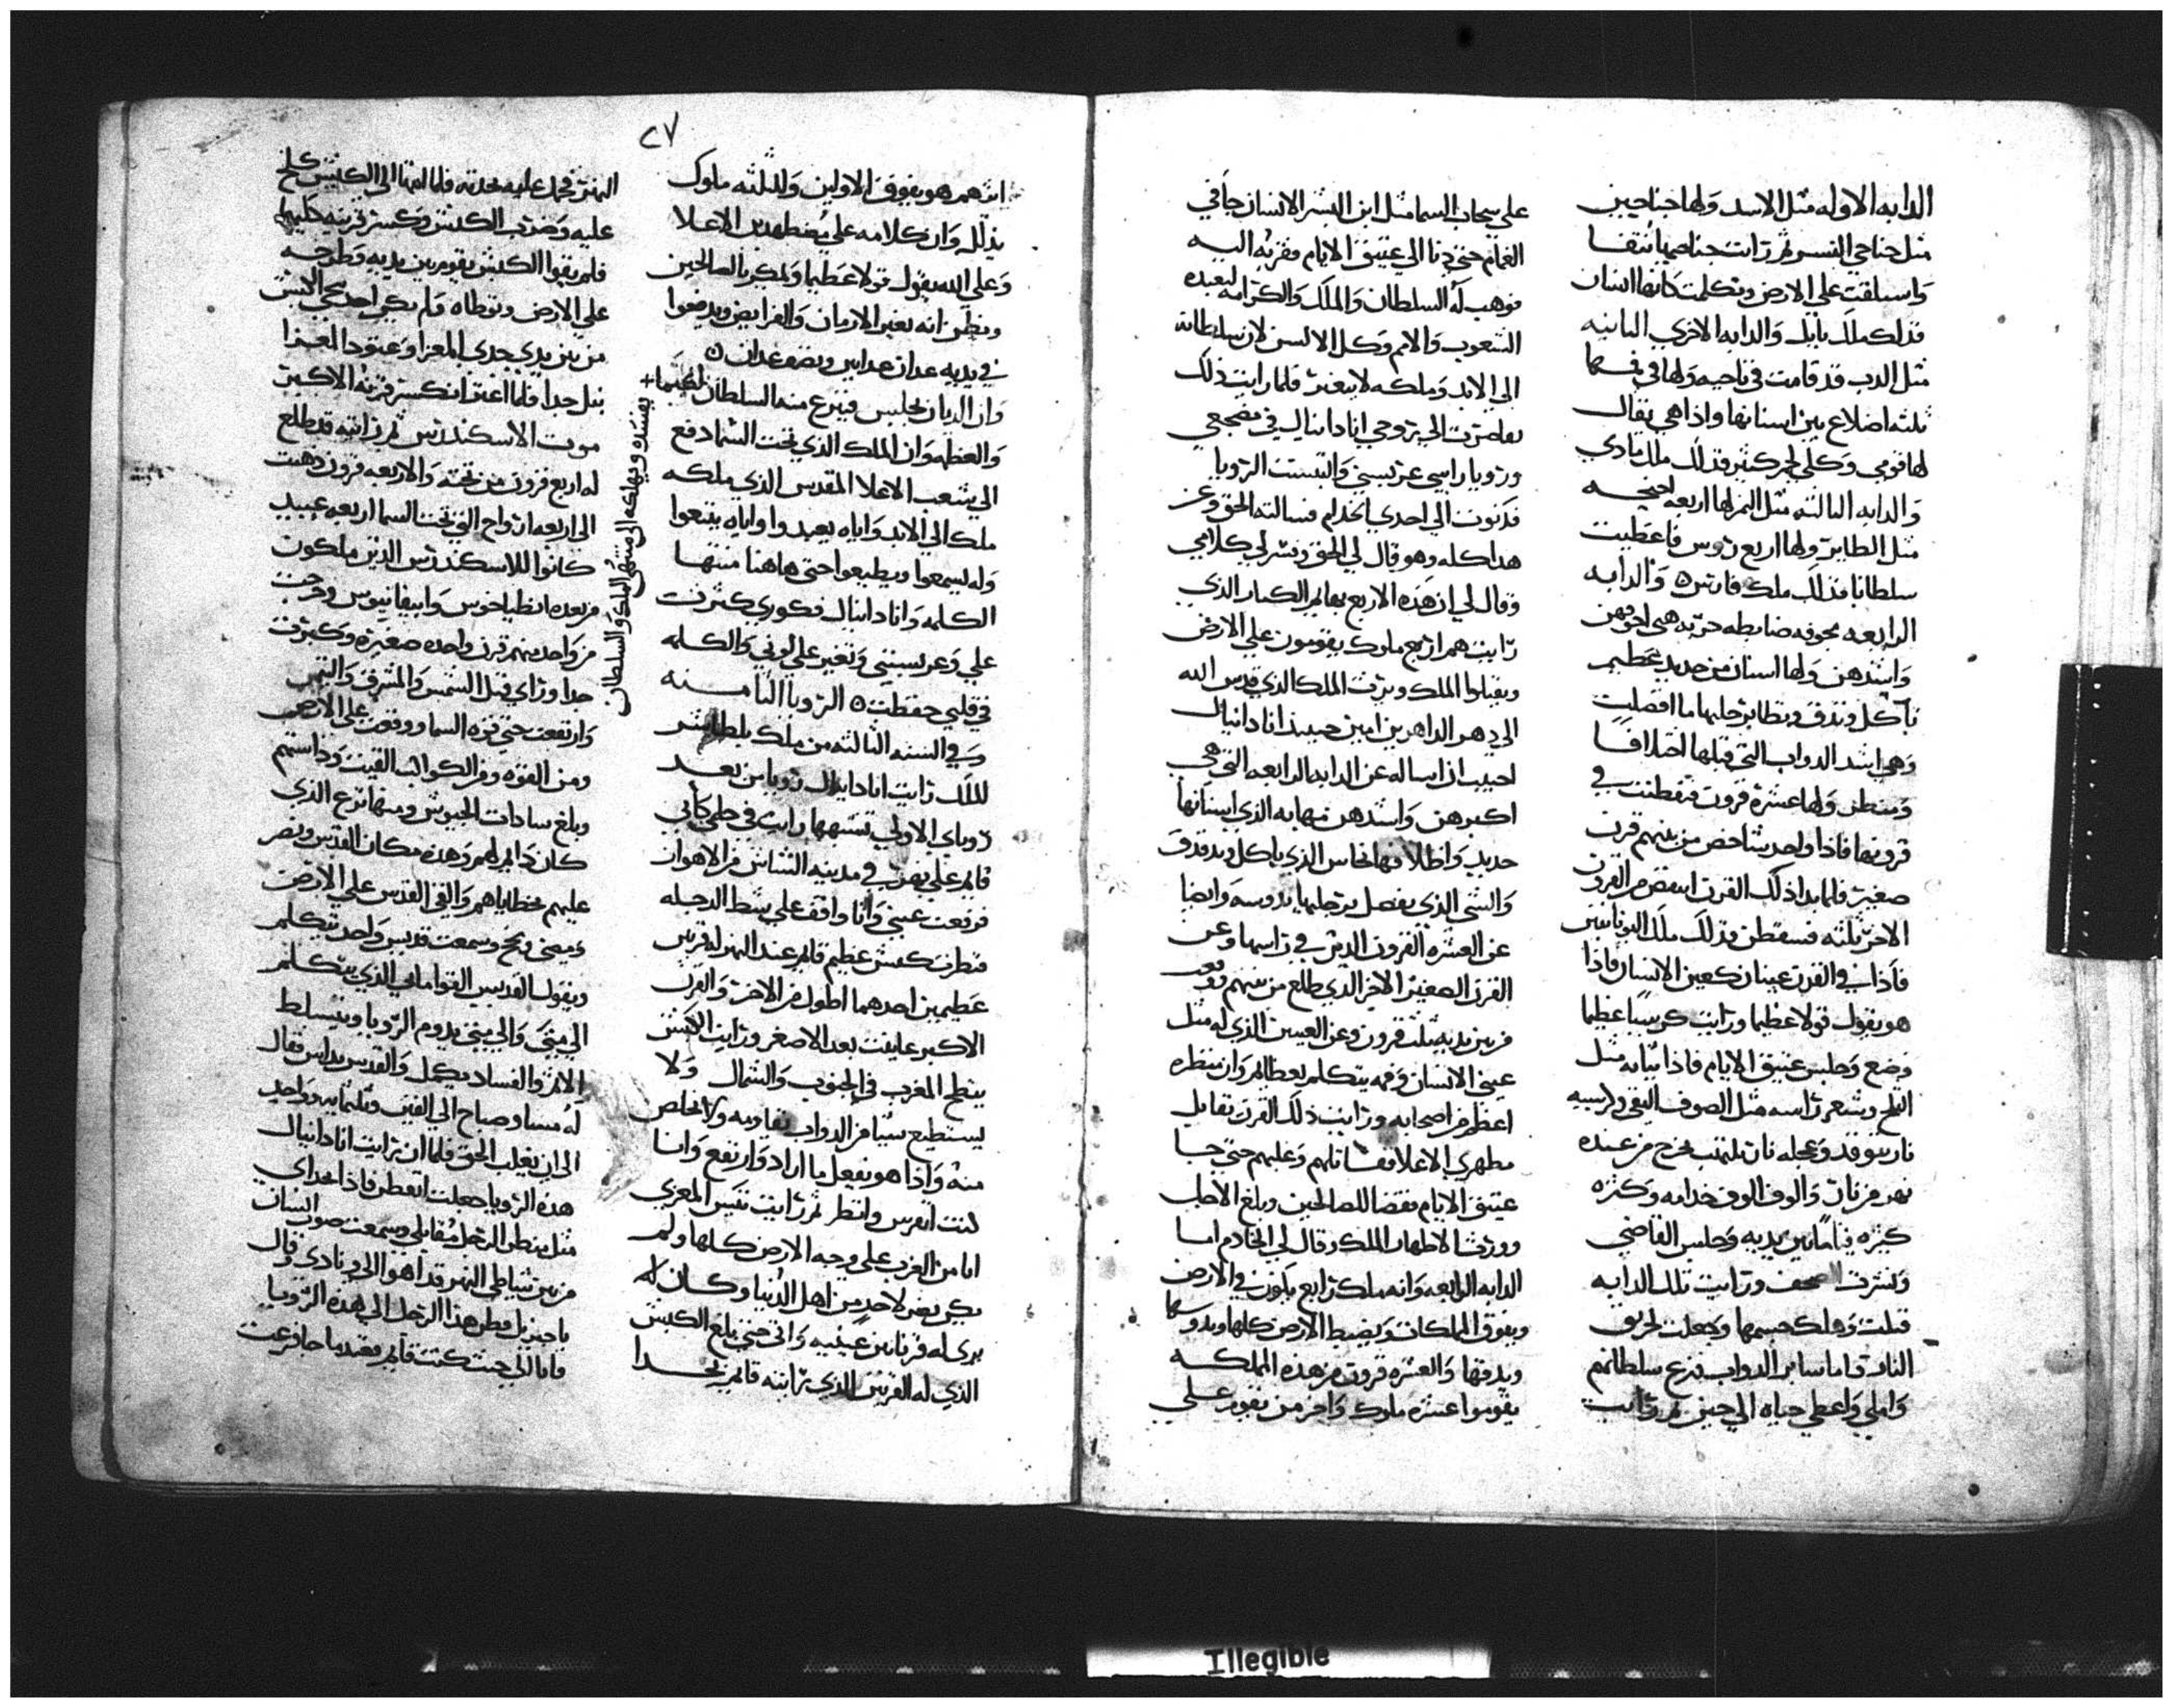 الدابه الاوله مثل الاسد ولها جناحين
مثل جناحي النسر ثم رايت جناحيها نتفا
واستلقت علي الارض وتكلمت كانها انسان
فذلك ملك بابل والدابه الاخري الثانيه
مثل الدب قد قامت في ناحيه ولها في فمها
ثلثه اضلاع بين اسنانها واذا هي يقال
لها قومي وكلي لحم كثير فذلك ملك مادي
والدابه الثالثه مثل النمر لها اربعه اجنحه
مثل الطاير ولها اربع روس فاعطيت
سلطانا فذلك ملك فارس والدابه
الرابعه مخوفه ضابطه حربه هي اخوفهن
واشدهن ولها اسنان من حديد عظيم
تاكل وتدق وتطا برجليها ما افضلت
وهي اشد الدواب التي قبلها اختلافا
ومنظر ولها عشره قرون فتفطنت في
قرونها فاذا واحد شاخص من بينهم قرن
صغير فلما بدا ذلك القرن انتقض من القرون
الاخر ثلثه فسقطن فذلك ملك اليونانيين
فاذا في القرن عينان كعين الانسان فاذا
هو يقول قولا عظيما ورايت كرسيا عظيما
وضع وجلس عتيق الايام فاذا ثيابه مثل
الثلج وشعر راسه مثل الصوف النقي وكرسيه
نار تتوقد وعجله نار تلتهب يخرج من عنده
نهر من نار والوف الوف خدامه وكثره
كثيره قياما بين يديه وجلس القاضي
ونشرت الصحف ورايت تلك الدابه
قتلت وهلك جسمها وجعلت لحريق
النار واما ساير الدواب نزع سلطانهم
واملي واعطي حياه الي حين ثم رايت
علي سحاب السما مثل ابن البشر الانسان جا في
الغمام حتي دنا الي عتيق الايام وقربه اليه
فوهب له السلطان والملك والكرامه ليعبده
الشعوب والامم وكل الالسن لان سلطانه
الي الابد وملكه لا يتغير فلما رايت ذلك
تعاصرت الي روحي انا دانيال في مضجعي
ورويا راسي عرتسني والتبست الرويا
فدنوت الي احدي الخدام فسالته الحق وعن
هذا كله وهو قال لي الحق وفسر لي كلامي
وقال لي ان هذه الاربع بهايم الكبار الذي
رايت هم اربع ملوك يقومون علي الارض
ويقبلوا الملك ويرث الملك الذي قدس الله
الي دهر الداهرين امين حينيذ انا دانيال
احببت ان اساله عن الدابه الرابعه التي هي
اكبرهن واشدهن مهابه الذي اسنانها
حديد واظلافها نحاس الذي ياكل ويدقدق
والشي الذي يفضل برجليها يدوسه وايضا
عن العشره القرون الذي في راسها وعن
القرن الصغير الاخر الذي طلع من بينهم ووقع
من بين يديه ثلث قرون وعن العينين الذي له مثل
عيني الانسان وفمه يتكلم بعظايم وان منظره
اعظم من اصحابه ورايت ذلك القرن تقابل
مطهري الاعلا فقاتلهم وغلبهم حتي جا
عتيق الايام فقضا للصالحين وبلغ الاجل
وورثوا الاطهار الملك وقال لي الخادم اما
الدابه الرابعه وانه ملك رابع يكون في الارض
ويفوق الملكات ويضبط الارض كلها ويدوسها
ويدقها والعشره قرون من هذه المملكه
يقوموا عشره ملوك واخر من يقوم علي
٢٧
اثرهم هو يفوق الاولين والثلثه ملوك
يذلل وان كلامه علي يضطهد بن الاعلا
وعلي الله يقول قولا عظيما ويمكر بالصالحين
ويظن انه يغير الازمان والفرايض ويدفعوا
في يديه عدان عدانين ونصف عدان
وان الديان يجلس فينزع منه السلطان
والعظمه وان الملك الذي تحت السما دفع
الي شعب الاعلا المقدس الذي ملكه
ملك الي الابد واياه يعبدوا واياه يتبعوا
وله يسمعوا ويطيعوا حتي هاهنا منتها
الكلمه وانا دانيال فكوري كثرت
علي وعرتسبتني وتغير علي لوني والكلمه
في قلبي حفظت الرويا الثامنه
وفي السنه الثالثه من ملك بلطاشصر
للملك رايت انا دانيال رويا من بعد
روياي الاولي تشبهها رايت في حلمي كاني
قايم علي نهر في مدينه الشاش من الاهواز
فرفعت عيني وانا واقف علي شط الدجله
فنظرت كبش عظيم قايم عند النهر له قرنين
عظيمين احدهما اطول من الاخر والقرن
الاكبر عاينت بعد الاصغر ورايت الكبش
ينطح المغرب في الجنوب والشمال ولا
يستطيع شيا من الدواب تقاومه ولا تخلص
منه واذا هو يفعل ما اراد وارتفع وانا
كنت اتفرس وانظر ثم رايت تيس المعزي
اتا من الغرب علي وجه الارض كلها ولم
يكن يضر لاحد من اهل الدنيا وكان له
يري له قرنا بين عينيه واتي حتي بلغ الكبش
الذي له القرنين الذي رايته قايم بحدا
يفسده ويهلكه الي منتهي الملك والسلطان
النهر فحمل عليه بحدته فلما انتها الي الكبش كلح
عليه وضرب الكبش وكسر قرنيه كليهما
فلم يقوا الكبش يقوم بين يديه وطرحه
علي الارض وتوطاه ولم يكن احد ينجي الكبش
من بين يدي جدي المعزا وعتود المعزا
نبل جدا فلما اعتز انكسر قرنه الاكبر
موت الاسكندرس ثم رايته قد طلع
له اربع قرون من تحته والاربعه قرون ذهبت
الي اربعه ارواح التي تحت السما اربعه عبيد
كانوا للاسكندرس الذين ملكوا
من بعده انطياخوس وابيفانيوس وخرجت
من واحد منهم قرن واحده صغيره وكبرت
جدا وراي قبل الشمس والمشرق والتيمن
وارتفعت حتي قوه السما ووقعت علي الارض
ومن القوه ومن الكواكب القيت وداستهم
وبلغ سادات الجيوش ومنها نزع الذي
كان دايم لهم وهذه مكان القدس ونصر
عليهم بخطاياهم والقي القدس علي الارض
ومضي ونجح وسمعت قديس واحد يتكلم
ويقول القديس القواماني الذي يتكلم
الي متي والي متي يدوم الرويا ويتسلط
الاثم والفساد يكمل والقدس يداس فقال
له مسا وصباح الي الفين وثلثمايه وواحد
الي ان يغلب الحق فلما ان رايت انا دانيال
هذه الرويا جعلت اتفطن فاذا بحداي
مثل منظر الرجل مقابلي وسمعت صوت انسان
من بين شاطي النهر قد اهوا الي ونادي وقال
يا جبريل فطن هذا الرجل الي هذه الرويا
فاتا الي حيث كنت قايم فعندما جا فزعت